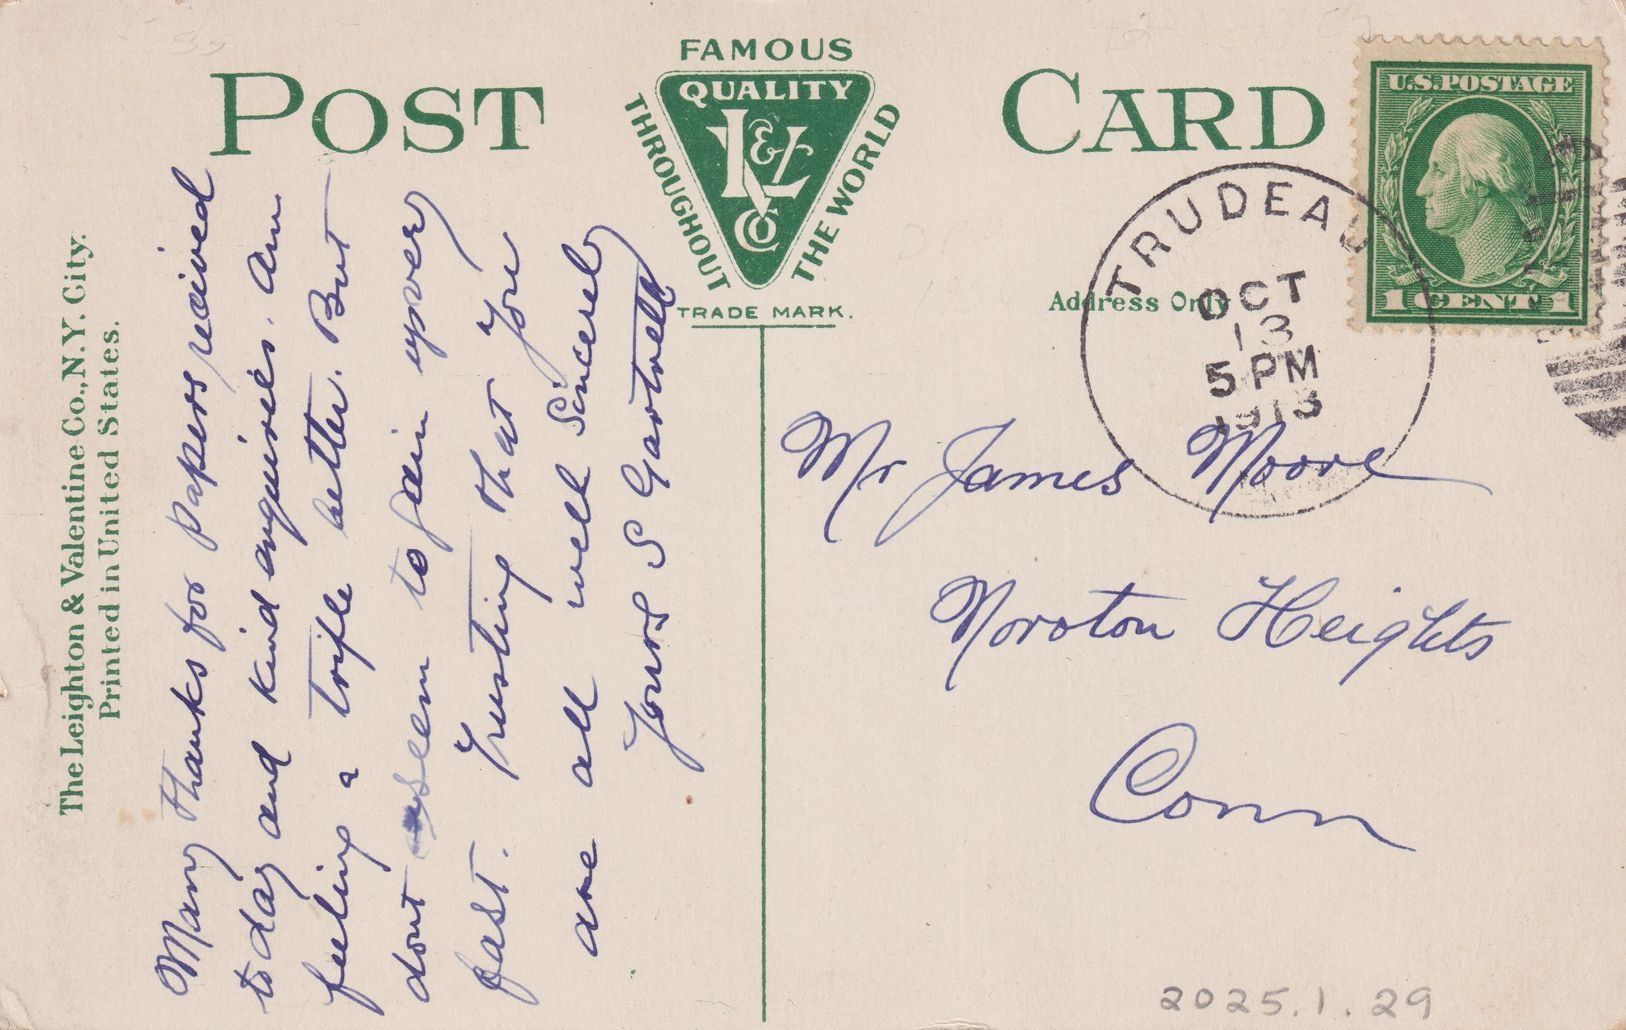 POST CARD
FAMOUS
QUALITY
L&V
Co
THROUGHOUT
THE WORLD
TRADE MARK.
Address Only
U.S. POSTAGE
1 CENT 1
TRUDEAU
OCT
13
5 PM
1913
The Leighton & Valentine Co., N.Y. City.
Printed in United States.
Many thanks for papers received
today and kind enquires. Am
feeling a trifle better. But
dont seem to gain upvery
fast. Trusting that You
are all well Sincerely
Yours S Gartrell
Mr James Moore
Noroton Heights
Conn
2025.1.29